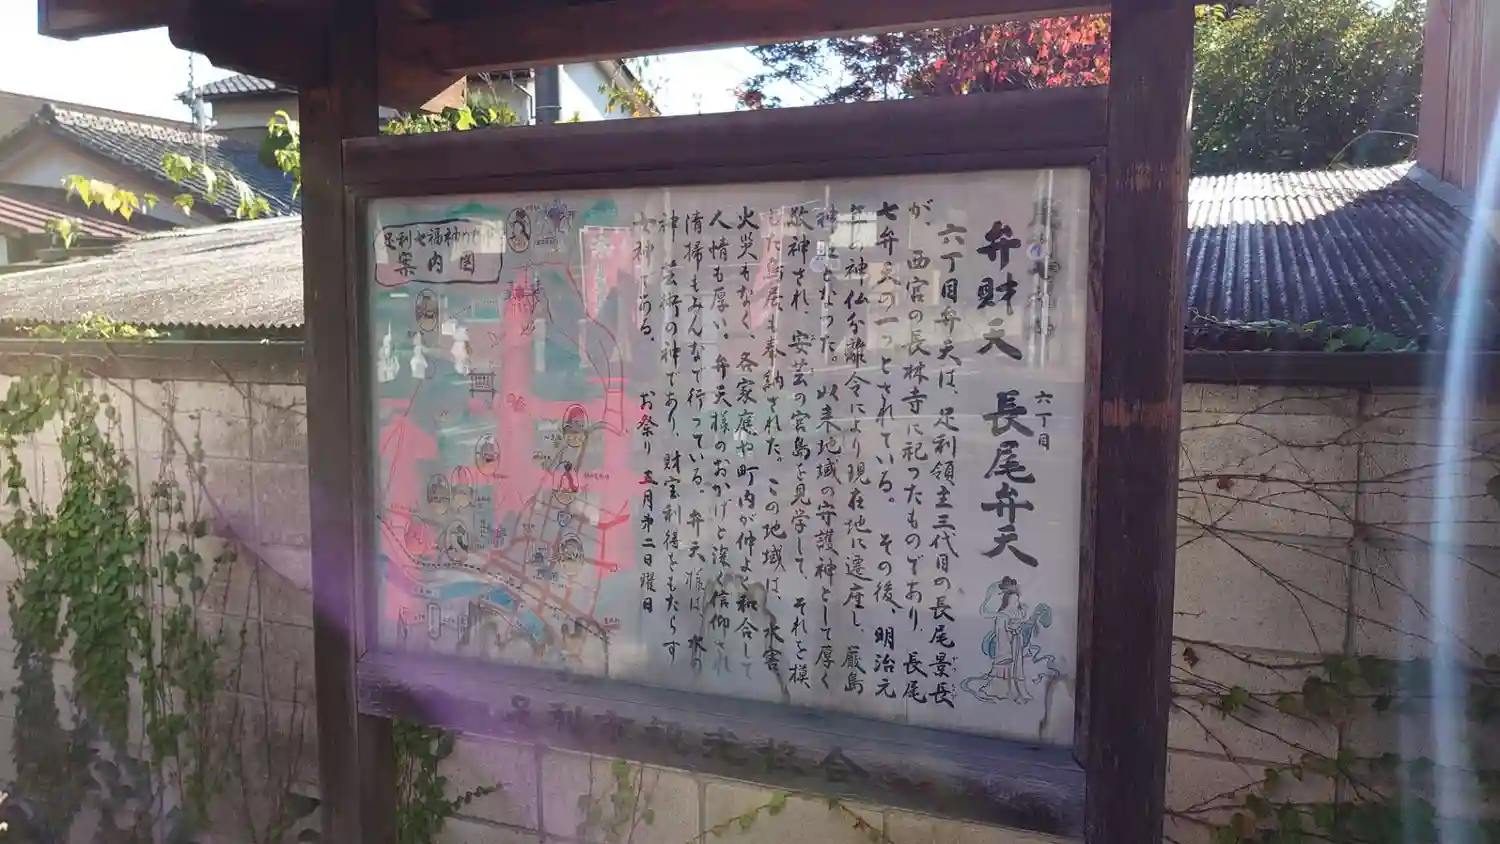 足利七福神めぐり
案内図
弁財天 六丁目 長尾弁天
六丁目弁天は、足利領主三代目の長尾景長
が、西宮の長林寺に祀ったものであり、長尾
七弁天の一つとされている。その後、明治元
年の神仏分離令により現在地に遷座し、厳島
神社となった。以来地域の守護神として厚く
敬神され、安芸の宮島を見学して、それを模
した鳥居も奉納された。この地域は、水害
火災もなく、各家庭や町内が仲よく和合して
人情も厚い。弁天様のおかげと深く信仰され
清掃もみんなで行っている。弁天様は、水の
神、芸術の神であり、財宝利得をもたらす
女神である。
お祭り 五月第二日曜日
足利市観光協会